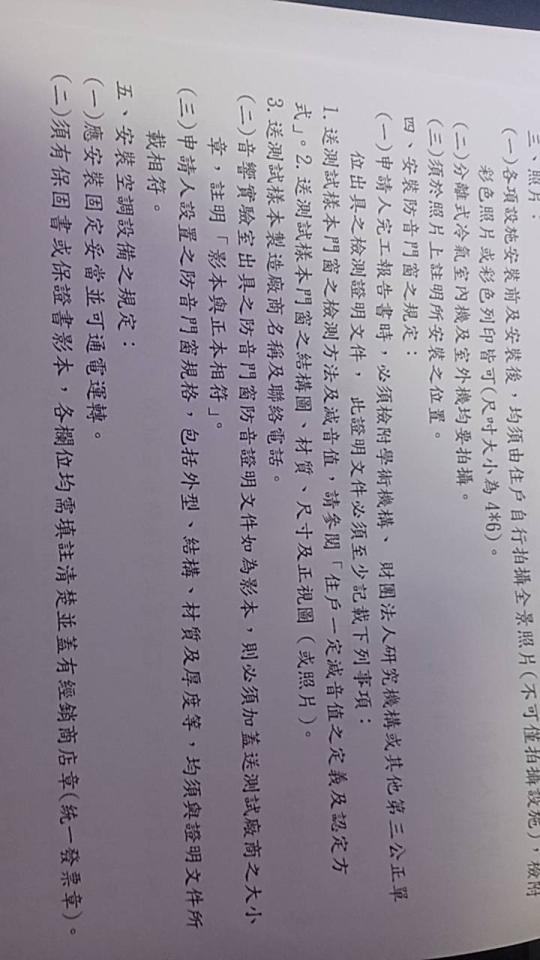 三、照片：
(一)各項設施安裝前及安裝後，均須由住戶自行拍攝全景照片(不可僅拍攝設施)，檢附
彩色照片或彩色列印皆可(尺吋大小為 4*6)。
(二)分離式冷氣室內機及室外機均要拍攝。
(三)須於照片上註明所安裝之位置。
四、安裝防音門窗之規定：
(一)申請人完工報告書時，必須檢附學術機構、財團法人研究機構或其他第三公正單
位出具之檢測證明文件，此證明文件必須至少記載下列事項：
1. 送測試樣本門窗之檢測方法及減音值，請參閱「住戶一定減音值之定義及認定方
式」。2. 送測試樣本門窗之結構圖、材質、尺寸及正視圖（或照片）。
3. 送測試樣本製造廠商名稱及聯絡電話。
(二)音響實驗室出具之防音門窗防音證明文件如為影本，則必須加蓋送測試廠商之大小
章，註明「影本與正本相符」。
(三)申請人設置之防音門窗規格，包括外型、結構、材質及厚度等，均須與證明文件所
載相符。
五、安裝空調設備之規定：
(一)應安裝固定妥當並可通電運轉。
(二)須有保固書或保證書影本，各欄位均需填註清楚並蓋有經銷商店章(統一發票章)。